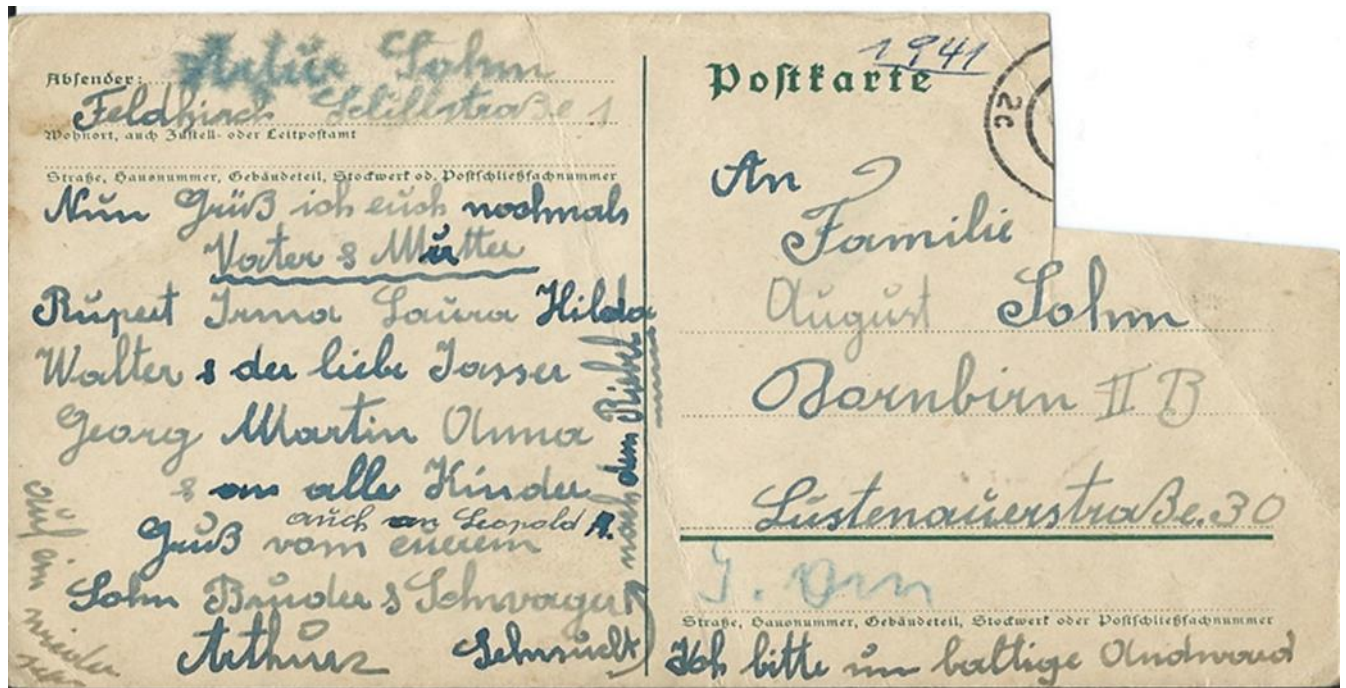 Absender: Artur Sohm
Feldkirch Schillstraße 1
Wohnort, auch Zustell- oder Leitpostamt
Straße, Hausnummer, Gebäudeteil, Stockwerk od. Postschließfachnummer
Nun Grüß ich euch nochmals
Vater & Mutter
Rupert Irma Laura Hilda
Walter & der liebe Jasser
Georg Martin Anna
& an alle Kinder
auch an Leopold A.
Gruß vom euerem
Sohn Bruder & Schwager
Arthur Sehnsucht
nach dem
auf ein wieder
sehn
1941
Postkarte
2c
An
Familie
August Sohm
Dornbirn II B
Lustenauerstraße.30
Straße, Hausnummer, Gebäudeteil, Stockwerk oder Postschließfachnummer
Ich bitte um baltige Andword